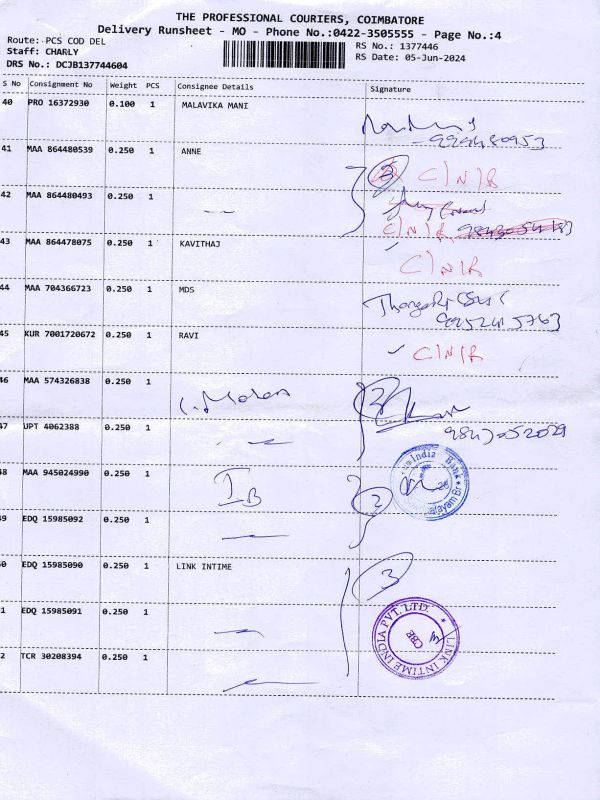 THE PROFESSIONAL COURIERS, COIMBATORE
Delivery Runsheet - MO - Phone No.:0422-3505555 - Page No.:4
Route: PCS COD DEL
Staff: CHARLY
DRS No.: DCJB137744604
RS No.: 1377446
RS Date: 05-Jun-2024
S No Consignment No Weight PCS Consignee Details Signature
40 PRO 16372930 0.100 1 MALAVIKA MANI
41 MAA 864480539 0.250 1 ANNE
2 C/N/R
42 MAA 864480493 0.250 1
C/N/R
43 MAA 864478075 0.250 1 KAVITHAJ
C/N/R
44 MAA 704366723 0.250 1 MDS
45 KUR 7001720672 0.250 1 RAVI
C/N/R
46 MAA 574326838 0.250 1
2
47 UPT 4062388 0.250 1
48 MAA 945024990 0.250 1 IB
India Bank
2
49 EDQ 15985092 0.250 1
50 EDQ 15985090 0.250 1 LINK INTIME 3
1 EDQ 15985091 0.250 1
LINK INTIME INDIA PVT. LTD.
CBE
2 TCR 30208394 0.250 1